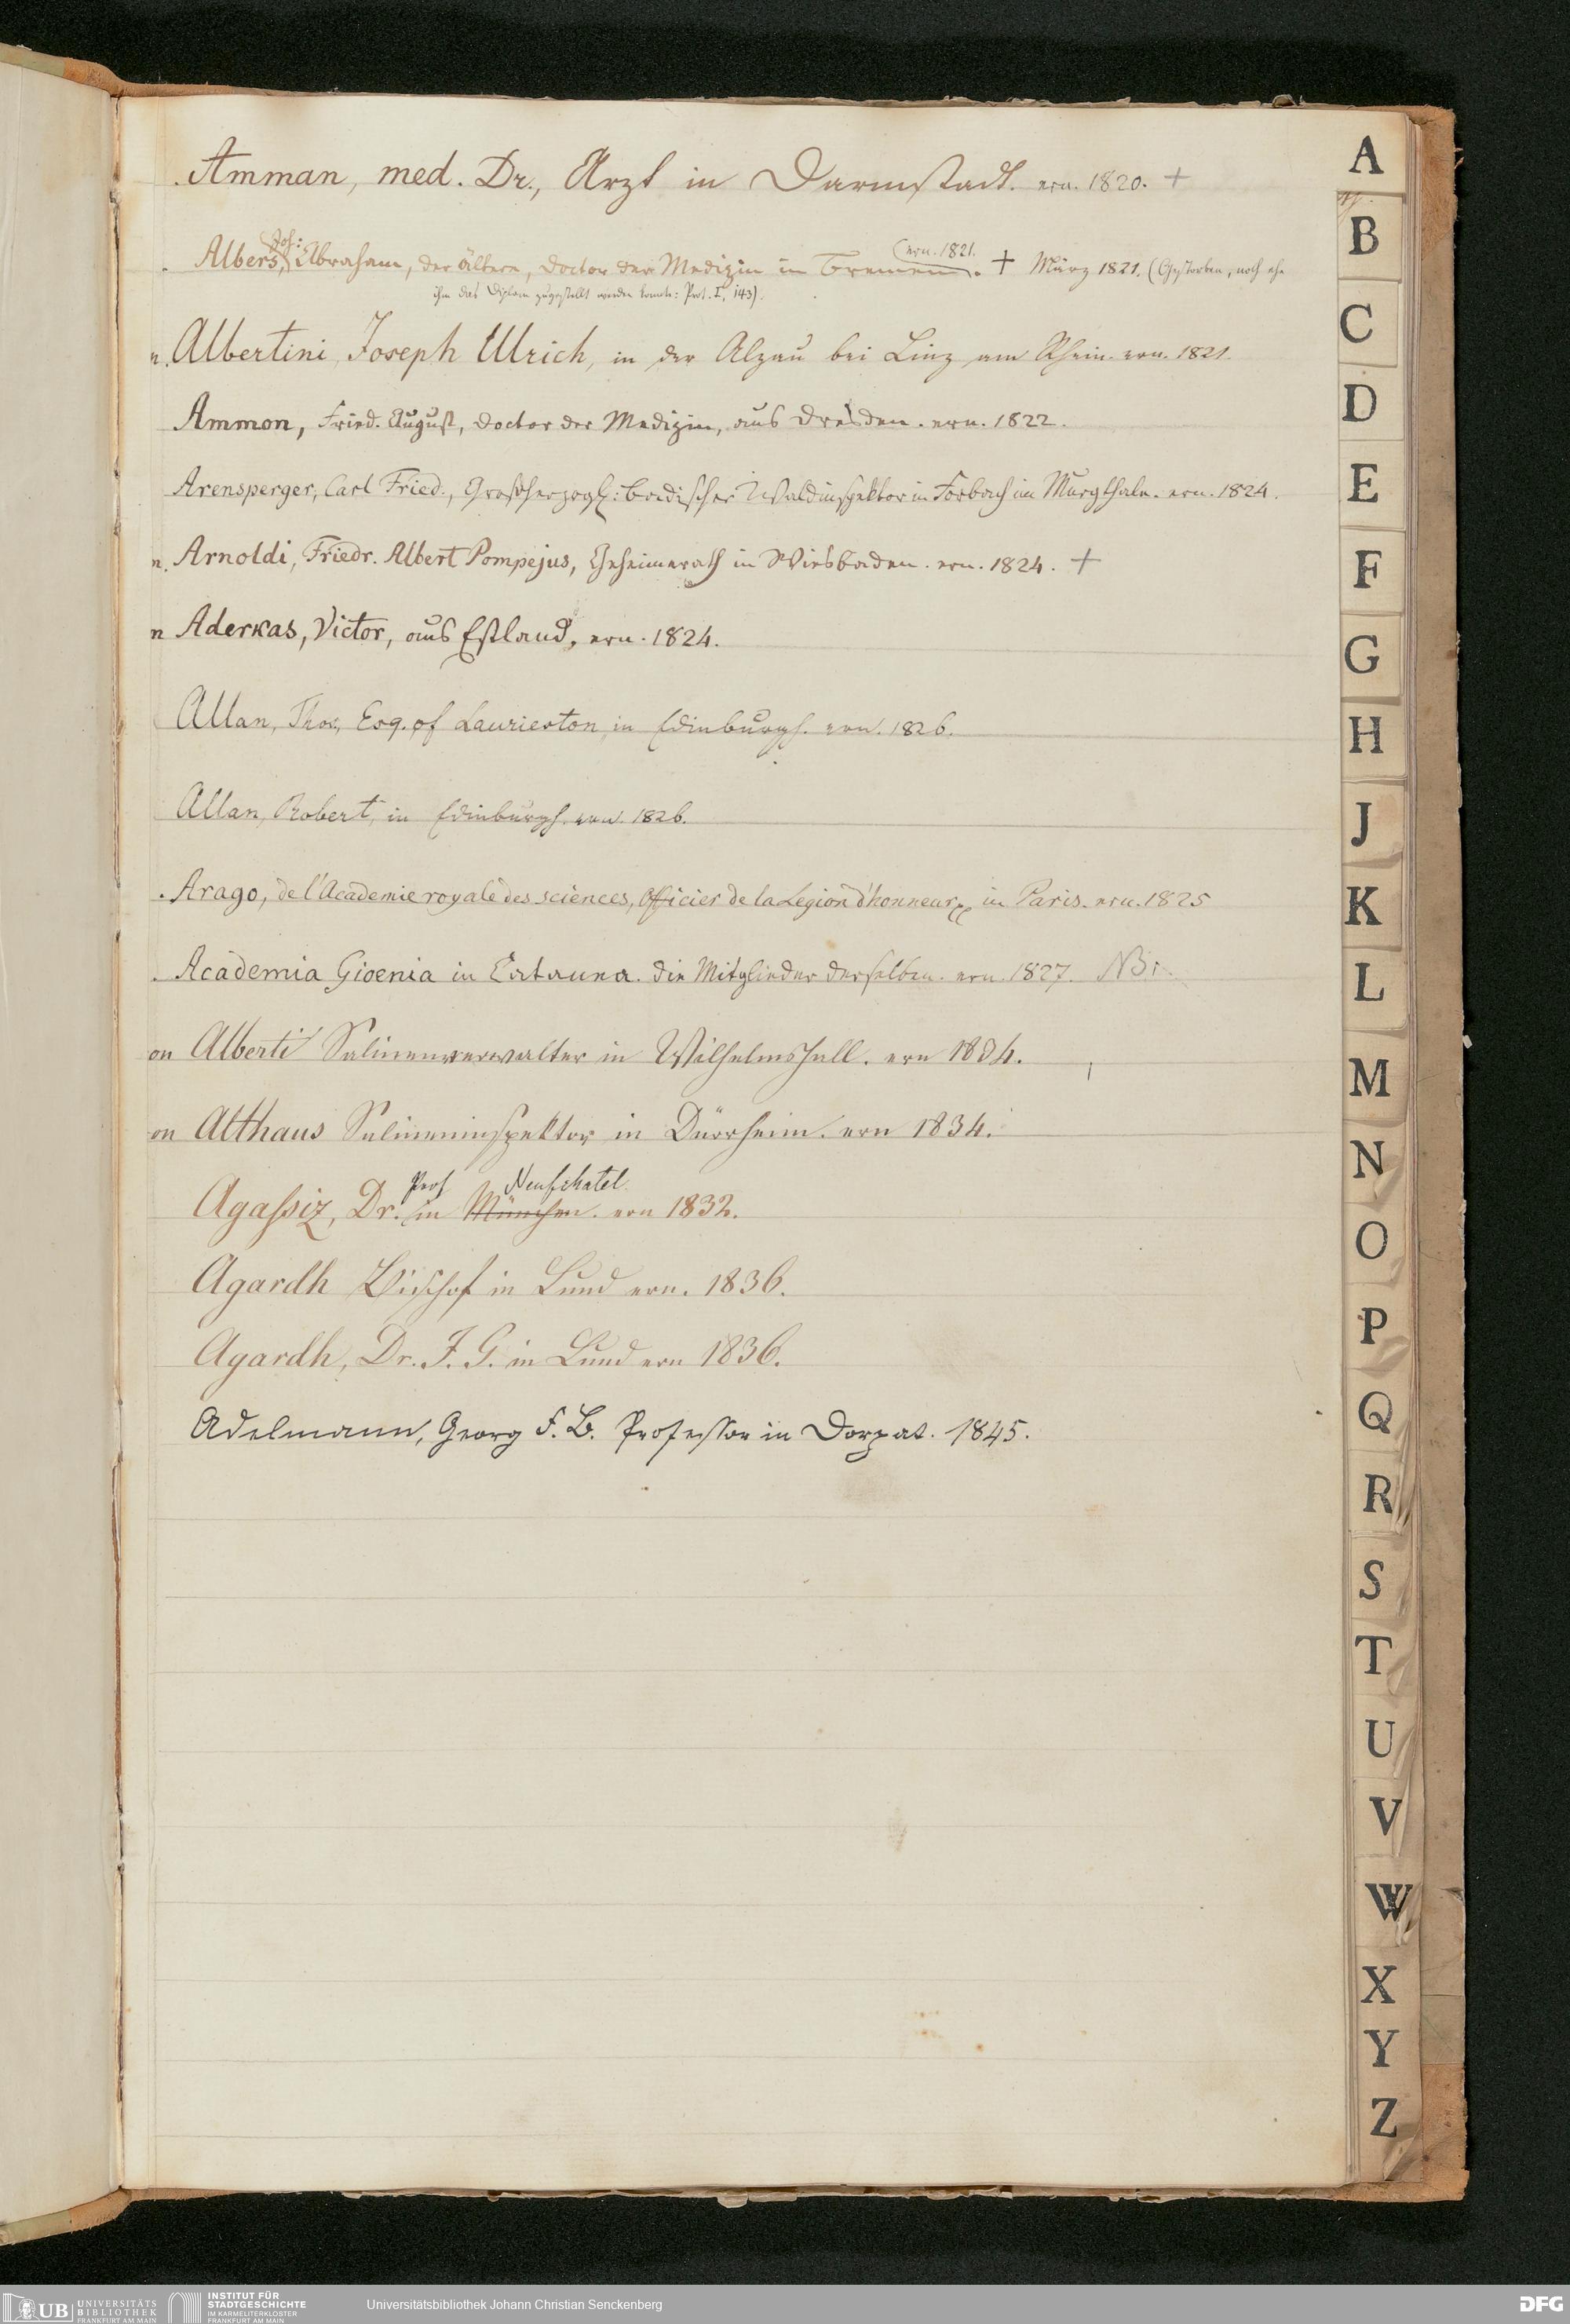 Amman, med. Dr., Arzt in Darmstadt. ern. 1820. +
Albers, Joh: Abraham, der ältere, Doctor der Medizin in Bremen. (ern. 1821. † März 1821. (Gestorben, noch ehe
ihm das Diplom zugestellt werden konnte: Prot. I, 143).
n. Albertini, Joseph Ulrich, in der Alzau bei Linz am Rhein. ern. 1821.
Ammon, Fried. August, Doctor der Medizin, aus Dresden. ern. 1822.
Arensperger, Carl Fried., Großherzogl: Badischer Waldinspektor in Forbach im Murgthale. ern. 1824.
n. Arnoldi, Friedr. Albert Pompejus, Geheimerath in Wiesbaden. ern. 1824. +
n Aderkas, Victor, aus Estland, ern. 1824.
Allan, Thos., Esq. of Laurieston, in Edinburgh. ern. 1826.
Allan, Robert, in Edinburgh. ern. 1826.
. Arago, de l'Academie royale des sciences, Officier de la Legion d'honneur in Paris. ern. 1825
. Academia Gioenia in Catauna. die Mitglieder derselben. ern. 1827.
on Alberti Salinenverwalter in Wilhelmshall. ern 1834.
on Althaus Salineninspektor in Dürrheim. ern 1834.
Prof Neufchatel
Agassiz, Dr. in München. ern 1832.
Agardh Bischof in Lund ern. 1836.
Agardh, Dr. J. G. in Lund ern 1836.
Adelmann, Georg F. B. Professor in Dorpat. 1845.
A
B
C
D
E
F
G
H
J
K
L
M
N
O
P
Q
R
S
T
U
V
W
X
Y
Z
UB UNIVERSITÄTS
BIBLIOTHEK
FRANKFURT AM MAIN
INSTITUT FÜR
STADTGESCHICHTE
IM KARMELITERKLOSTER
FRANKFURT AM MAIN
Universitätsbibliothek Johann Christian Senckenberg
DFG